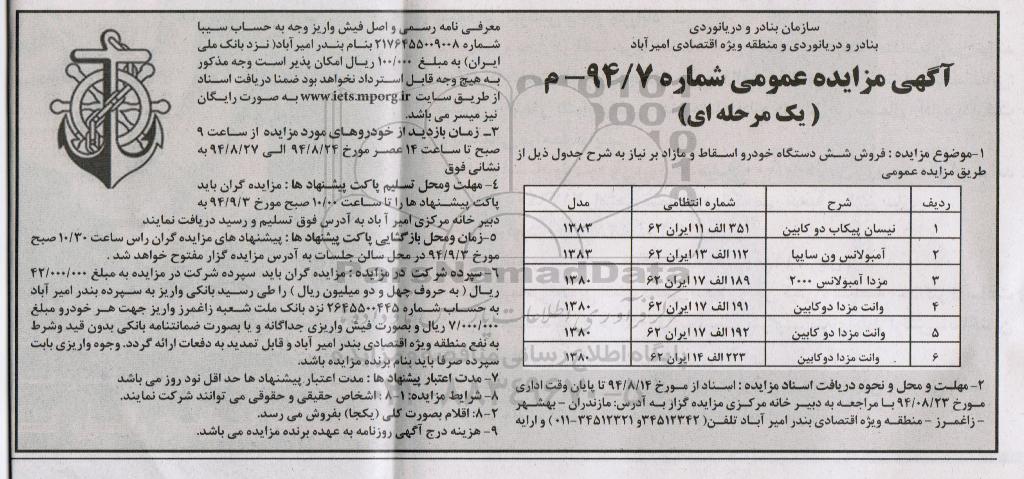 سازمان بنادر و دریانوردی
بنادر و دریانوردی و منطقه ویژه اقتصادی امیرآباد
آگهی مزایده عمومی شماره ۹۴/۷– م
( یک مرحله ای)
۱-موضوع مزایده : فروش شش دستگاه خودرو اسقاط و مازاد بر نیاز به شرح جدول ذیل از
طریق مزایده عمومی
ردیف شرح شماره انتظامی مدل
۱ نیسان پیکاب دو کابین ۳۵۱ الف ۱۱ ایران ۶۲ ۱۳۸۳
۲ آمبولانس ون سایپا ۱۱۲ الف ۱۳ ایران ۶۲ ۱۳۸۳
۳ مزدا آمبولانس ۲۰۰۰ ۱۸۹ الف ۱۷ ایران ۶۲ ۱۳۸۰
۴ وانت مزدا دوکابین ۱۹۱ الف ۱۷ ایران ۶۲ ۱۳۸۰
۵ وانت مزدا دو کابین ۱۹۲ الف ۱۷ ایران ۶۲ ۱۳۸۰
۶ وانت مزدا دوکابین ۲۲۳ الف ۱۴ ایران ۶۲ ۱۳۸۰
۲- مهلت و محل و نحوه دریافت اسناد مزایده : اسناد از مورخ ۹۴/۸/۱۴ تا پایان وقت اداری
مورخ ۹۴/۰۸/۲۳ با مراجعه به دبیر خانه مرکزی مزایده گزار به آدرس: مازندران - بهشهر
- زاغمرز - منطقه ویژه اقتصادی بندر امیر آباد تلفن( ۳۴۵۱۲۳۴۲ و ۳۴۵۱۲۳۲۱-۰۱۱) و ارایه
معرفی نامه رسمی و اصل فیش واریز وجه به حساب سیبا
شماره ۲۱۷۶۴۵۵۰۰۹۰۰۸ بنام بندر امیرآباد( نزد بانک ملی
ایران) به مبلغ ۱۰۰/۰۰۰ ریال امکان پذیر است وجه مذکور
به هیچ وجه قابل استرداد نخواهد بود ضمنا دریافت اسناد
از طریق سایت www.iets.mporg.ir به صورت رایگان
نیز میسر می باشد.
۳- زمان بازدید از خودروهای مورد مزایده از ساعت ۹
صبح تا ساعت ۱۴ عصر مورخ ۹۴/۸/۲۴ الی ۹۴/۸/۲۷ به
نشانی فوق
۴- مهلت ومحل تسلیم پاکت پیشنهاد ها : مزایده گران باید
پاکت پیشنهاد ها را تا ساعت ۱۰/۰۰ صبح مورخ ۹۴/۹/۳ به
دبیر خانه مرکزی امیر آ باد به آدرس فوق تسلیم و رسید دریافت نمایند
۵-زمان ومحل بازگشایی پاکت پیشنهاد ها : پیشنهاد های مزایده گران راس ساعت ۱۰/۳۰ صبح
مورخ ۹۴/۹/۳ در محل سالن جلسات به آدرس مزایده گزار مفتوح خواهد شد .
۶- سپرده شرکت در مزایده : مزایده گران باید سپرده شرکت در مزایده به مبلغ ۴۲/۰۰۰/۰۰۰
ریال ( به حروف چهل و دو میلیون ریال ) را طی رسید بانکی واریز به سپرده بندر امیر آباد
به حساب شماره ۲۶۴۵۵۰۰۴۴۵ نزد بانک ملت شعبه زاغمرز واریز جهت هر خودرو مبلغ
۷/۰۰۰/۰۰۰ ریال و بصورت فیش واریزی جداگانه و یا بصورت ضمانتنامه بانکی بدون قید وشرط
به نفع منطقه ویژه اقتصادی بندر امیر آباد و قابل تمدید به دفعات ارائه گردد. وجوه واریزی بابت
سپرده صرفا باید بنام برنده مزایده باشد.
۷- مدت اعتبار پیشنهاد ها : مدت اعتبار پیشنهاد ها حد اقل نود روز می باشد
۸- شرایط مزایده: ۱-۸: اشخاص حقیقی و حقوقی می توانند شرکت نمایند.
۲-۸: اقلام بصورت کلی (یکجا) بفروش می رسد.
۹- هزینه درج آگهی روزنامه به عهده برنده مزایده می باشد.